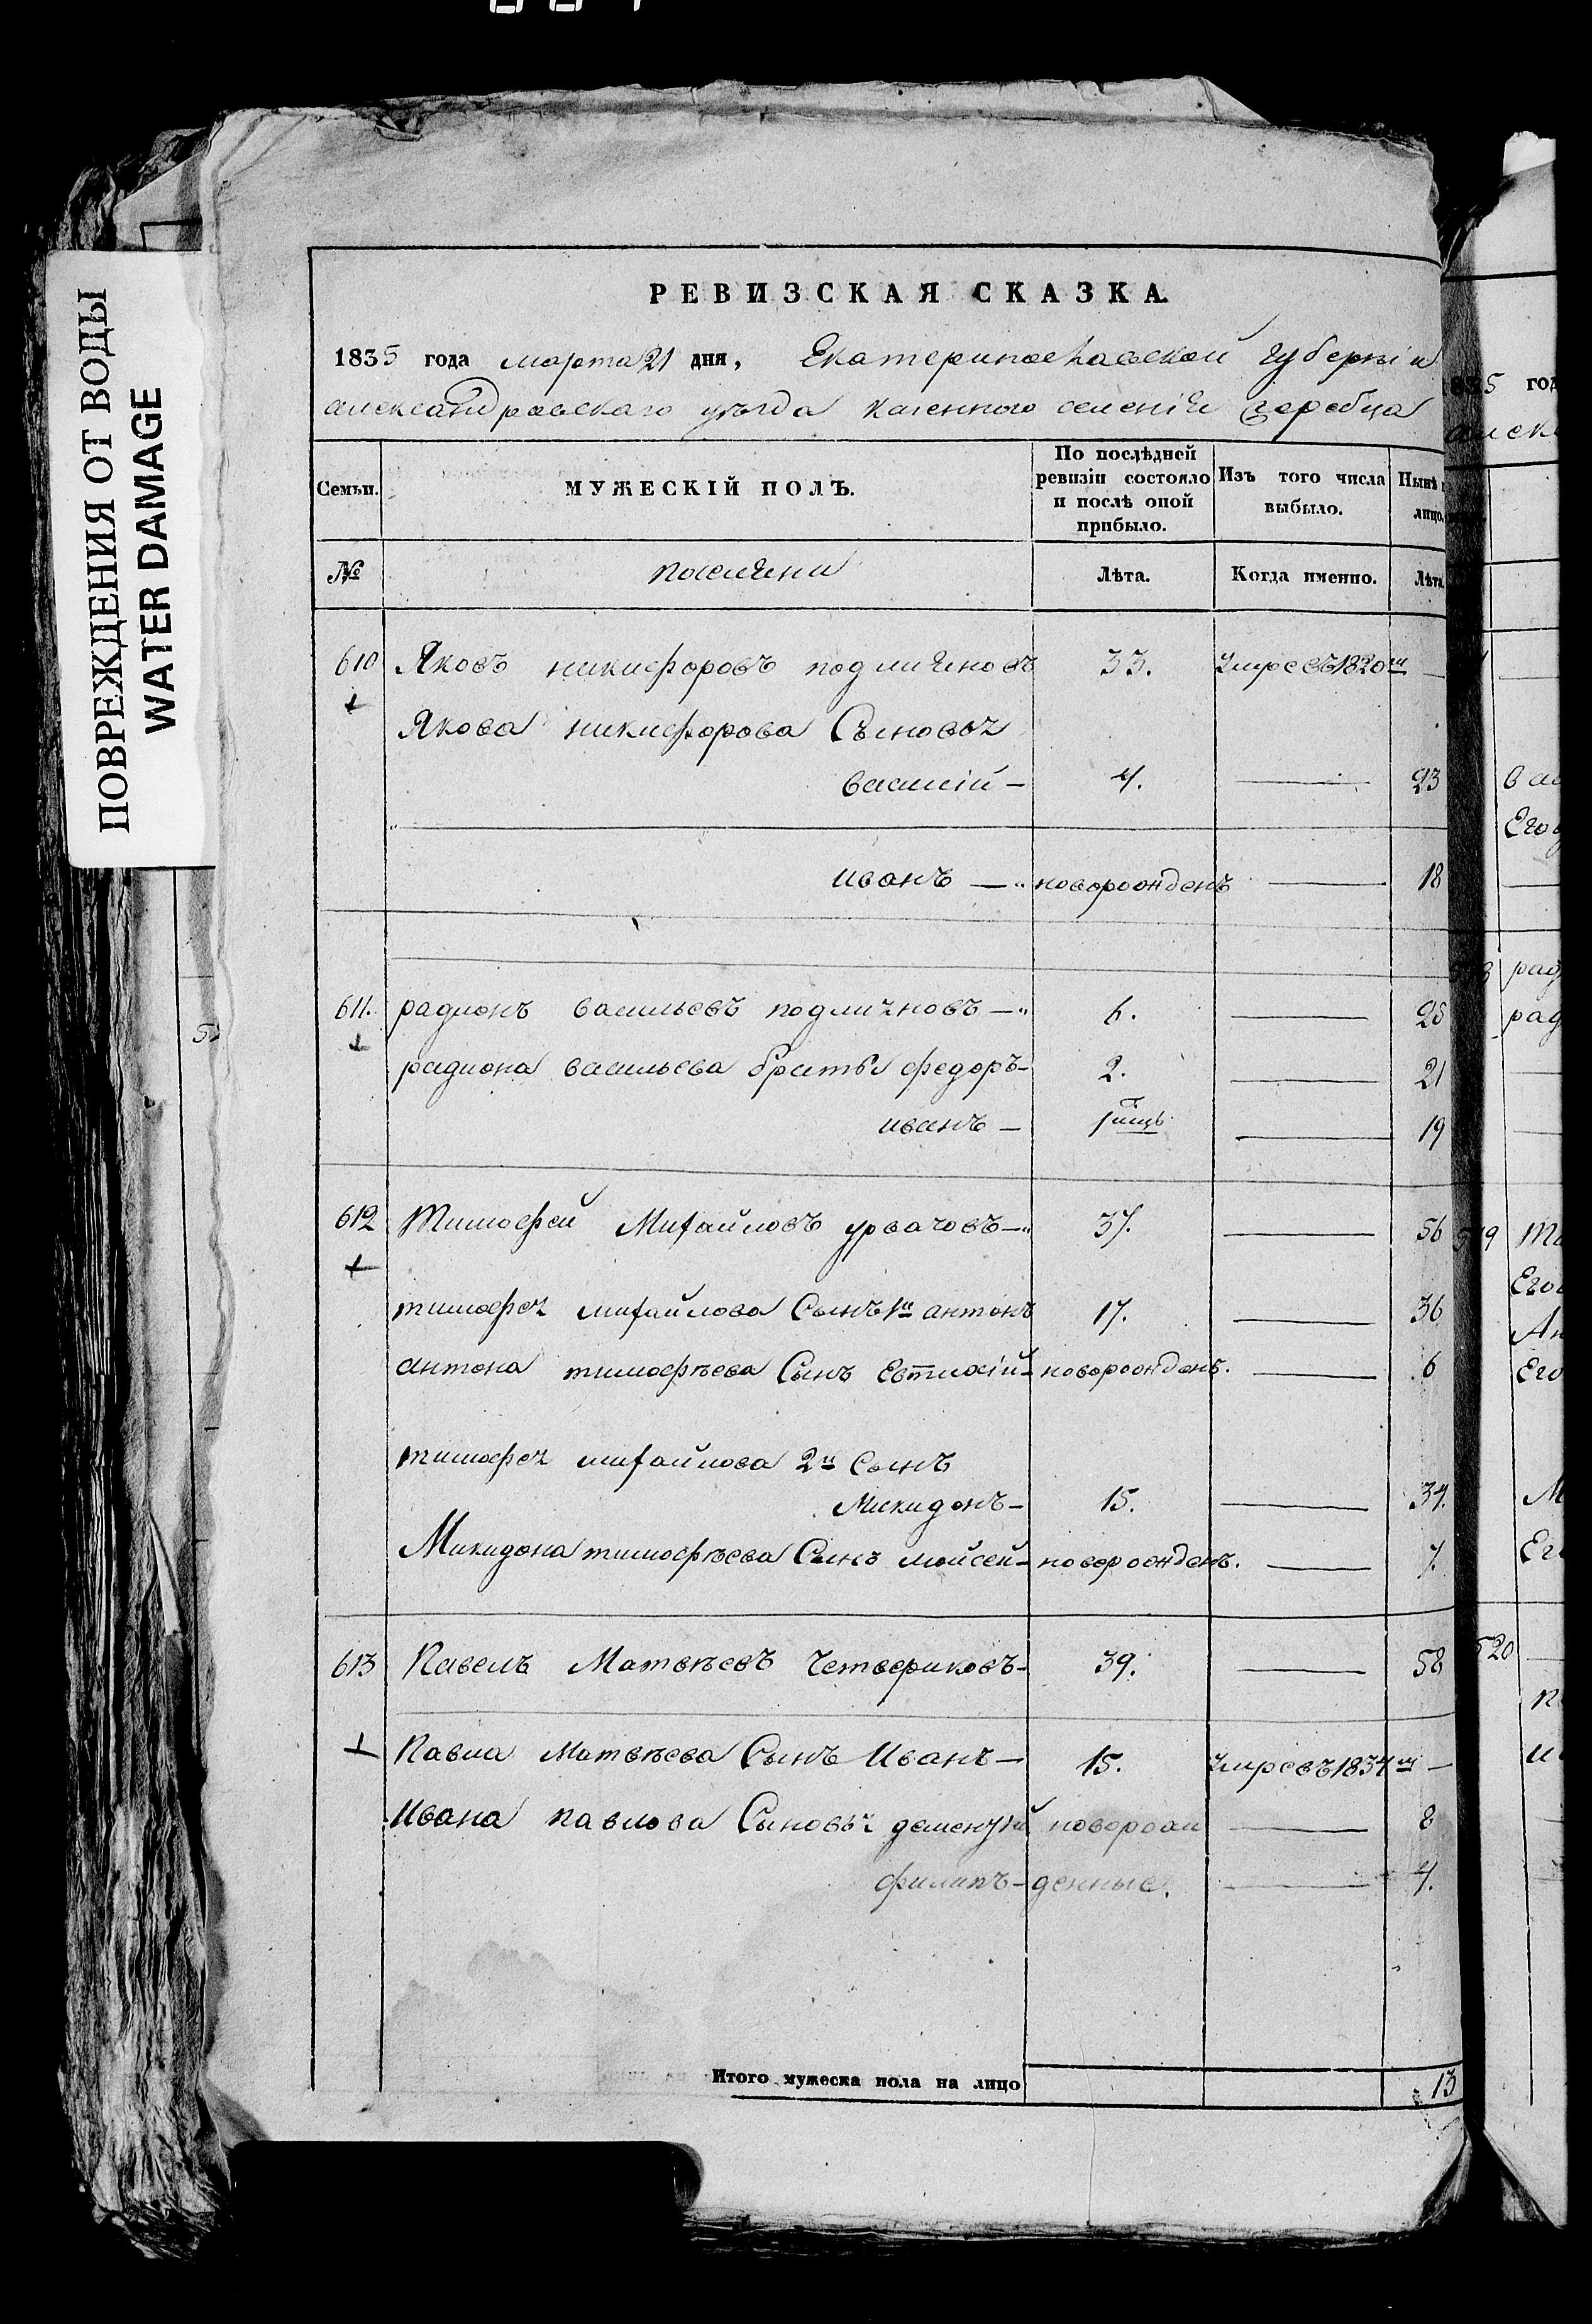 ПОВРЕЖДЕНИЯ ОТ ВОДЫ
WATER DAMAGE
РЕВИЗСКАЯ СКАЗКА.
1835 года марта 21 дня, Екатеринославской губерніи
александровскаго уѣзда казенного селенія Жеребца
Семьи. МУЖЕСКІЙ ПОЛЪ. По послѣдней ревизіи состояло и послѣ оной прибыло. Изъ того числа выбыло. Нынѣ лицо.
№ поселяни Лѣта. Когда именно. Лѣта.
610 Яковъ никифоровъ 33. умре въ 1820м —
Якова никифорова Сыновья
василій — 4. — 23
иванъ — новорожденъ — 18
611. радионъ васильевъ — 6. — 25
радиона васильева братья федоръ — 2. — 21
иванъ — 1 — 19
612 Тимофей Михайловъ — 37. — 56
тимофея михайлова Сынъ 1й антонъ 17. — 36
антона тимофѣева Сынъ Евтихій — новорожденъ. — 6
тимофея михайлова 2й Сынъ
Микидонъ — 15. — 34.
Микидона тимофѣева Сынъ мойсей — новорожденъ. — 7.
613 Павелъ Матвѣевъ Четвериковъ — 39. — 58
Павла Матвѣева Сынъ Иванъ — 15. умре въ 1834м —
Ивана павлова Сыновья дементій новорож — 8
филипъ — денные. — 4.
Итого мужеска пола на лицо 13